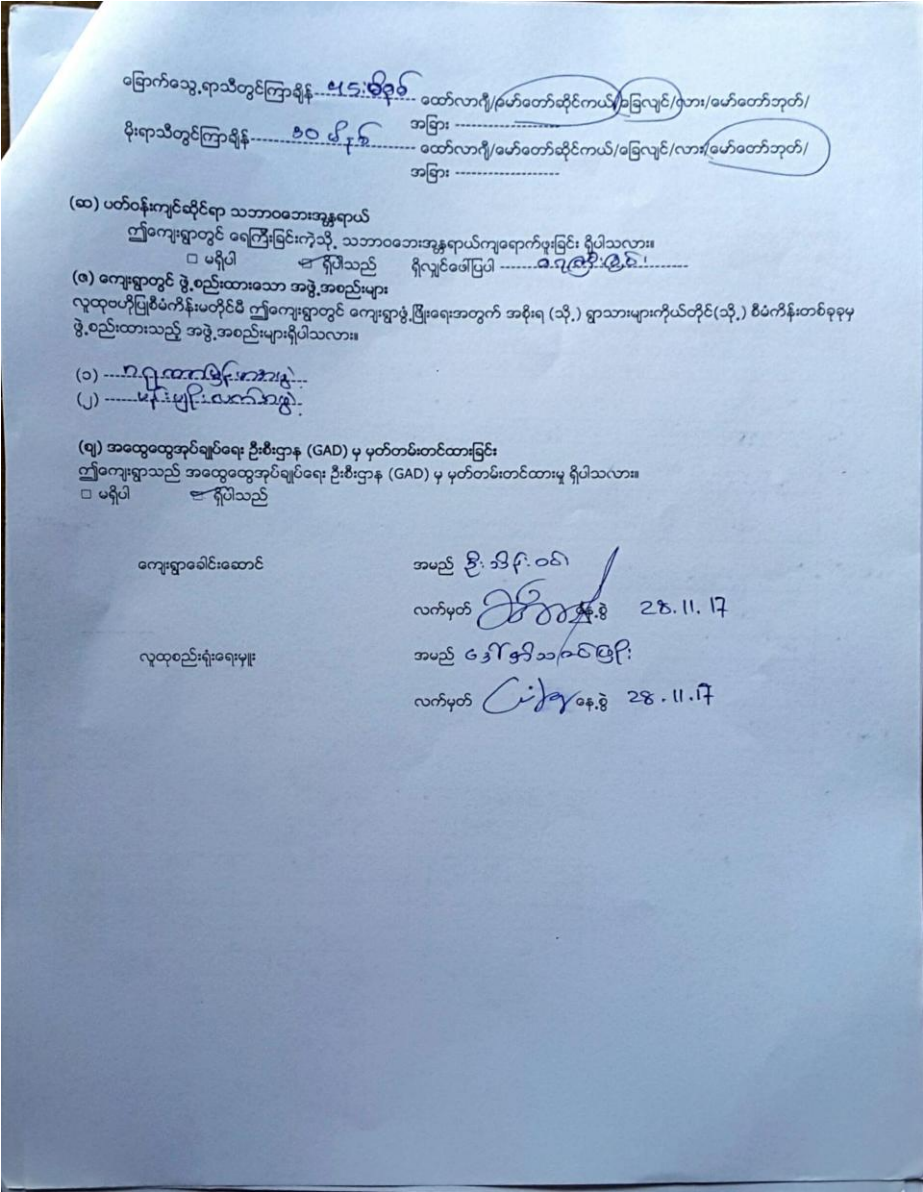 ခြောက်သွေ့ရာသီတွင်ကြာချိန် ၄၅ မိနစ် ထော်လာဂျီ/မော်တော်ဆိုင်ကယ်/ခြေလျင်/လား/မော်တော်ဘုတ်/
အခြား --------------------
မိုးရာသီတွင်ကြာချိန် ၃၀ မိနစ် ထော်လာဂျီ/မော်တော်ဆိုင်ကယ်/ခြေလျင်/လား/မော်တော်ဘုတ်/
အခြား --------------------
(ဆ) ပတ်ဝန်းကျင်ဆိုင်ရာ သဘာဝဘေးအန္တရာယ်
ဤကျေးရွာတွင် ရေကြီးခြင်းကဲ့သို့ သဘာဝဘေးအန္တရာယ်ကျရောက်ဖူးခြင်း ရှိပါသလား။
□ မရှိပါ ☑ ရှိပါသည် ရှိလျှင်ဖော်ပြပါ ရေကြီးခြင်း
(ဇ) ကျေးရွာတွင် ဖွဲ့စည်းထားသော အဖွဲ့အစည်းများ
လူထုဗဟိုပြုစီမံကိန်းမတိုင်မီ ဤကျေးရွာတွင် ကျေးရွာဖွံ့ဖြိုးရေးအတွက် အစိုးရ (သို့) ရွာသားများကိုယ်တိုင်(သို့) စီမံကိန်းတစ်ခုခုမှ
ဖွဲ့စည်းထားသည့် အဖွဲ့အစည်းများရှိပါသလား။
(၁)
(၂)
(ဈ) အထွေထွေအုပ်ချုပ်ရေး ဦးစီးဌာန (GAD) မှ မှတ်တမ်းတင်ထားခြင်း
ဤကျေးရွာသည် အထွေထွေအုပ်ချုပ်ရေး ဦးစီးဌာန (GAD) မှ မှတ်တမ်းတင်ထားမှု ရှိပါသလား။
□ မရှိပါ ☑ ရှိပါသည်
ကျေးရွာခေါင်းဆောင် အမည် ဦးသိန်းဝင်း
လက်မှတ် နေ့စွဲ 28.11.17
လူထုစည်းရုံးရေးမှူး အမည် ဒေါ်
လက်မှတ် နေ့စွဲ 28.11.17